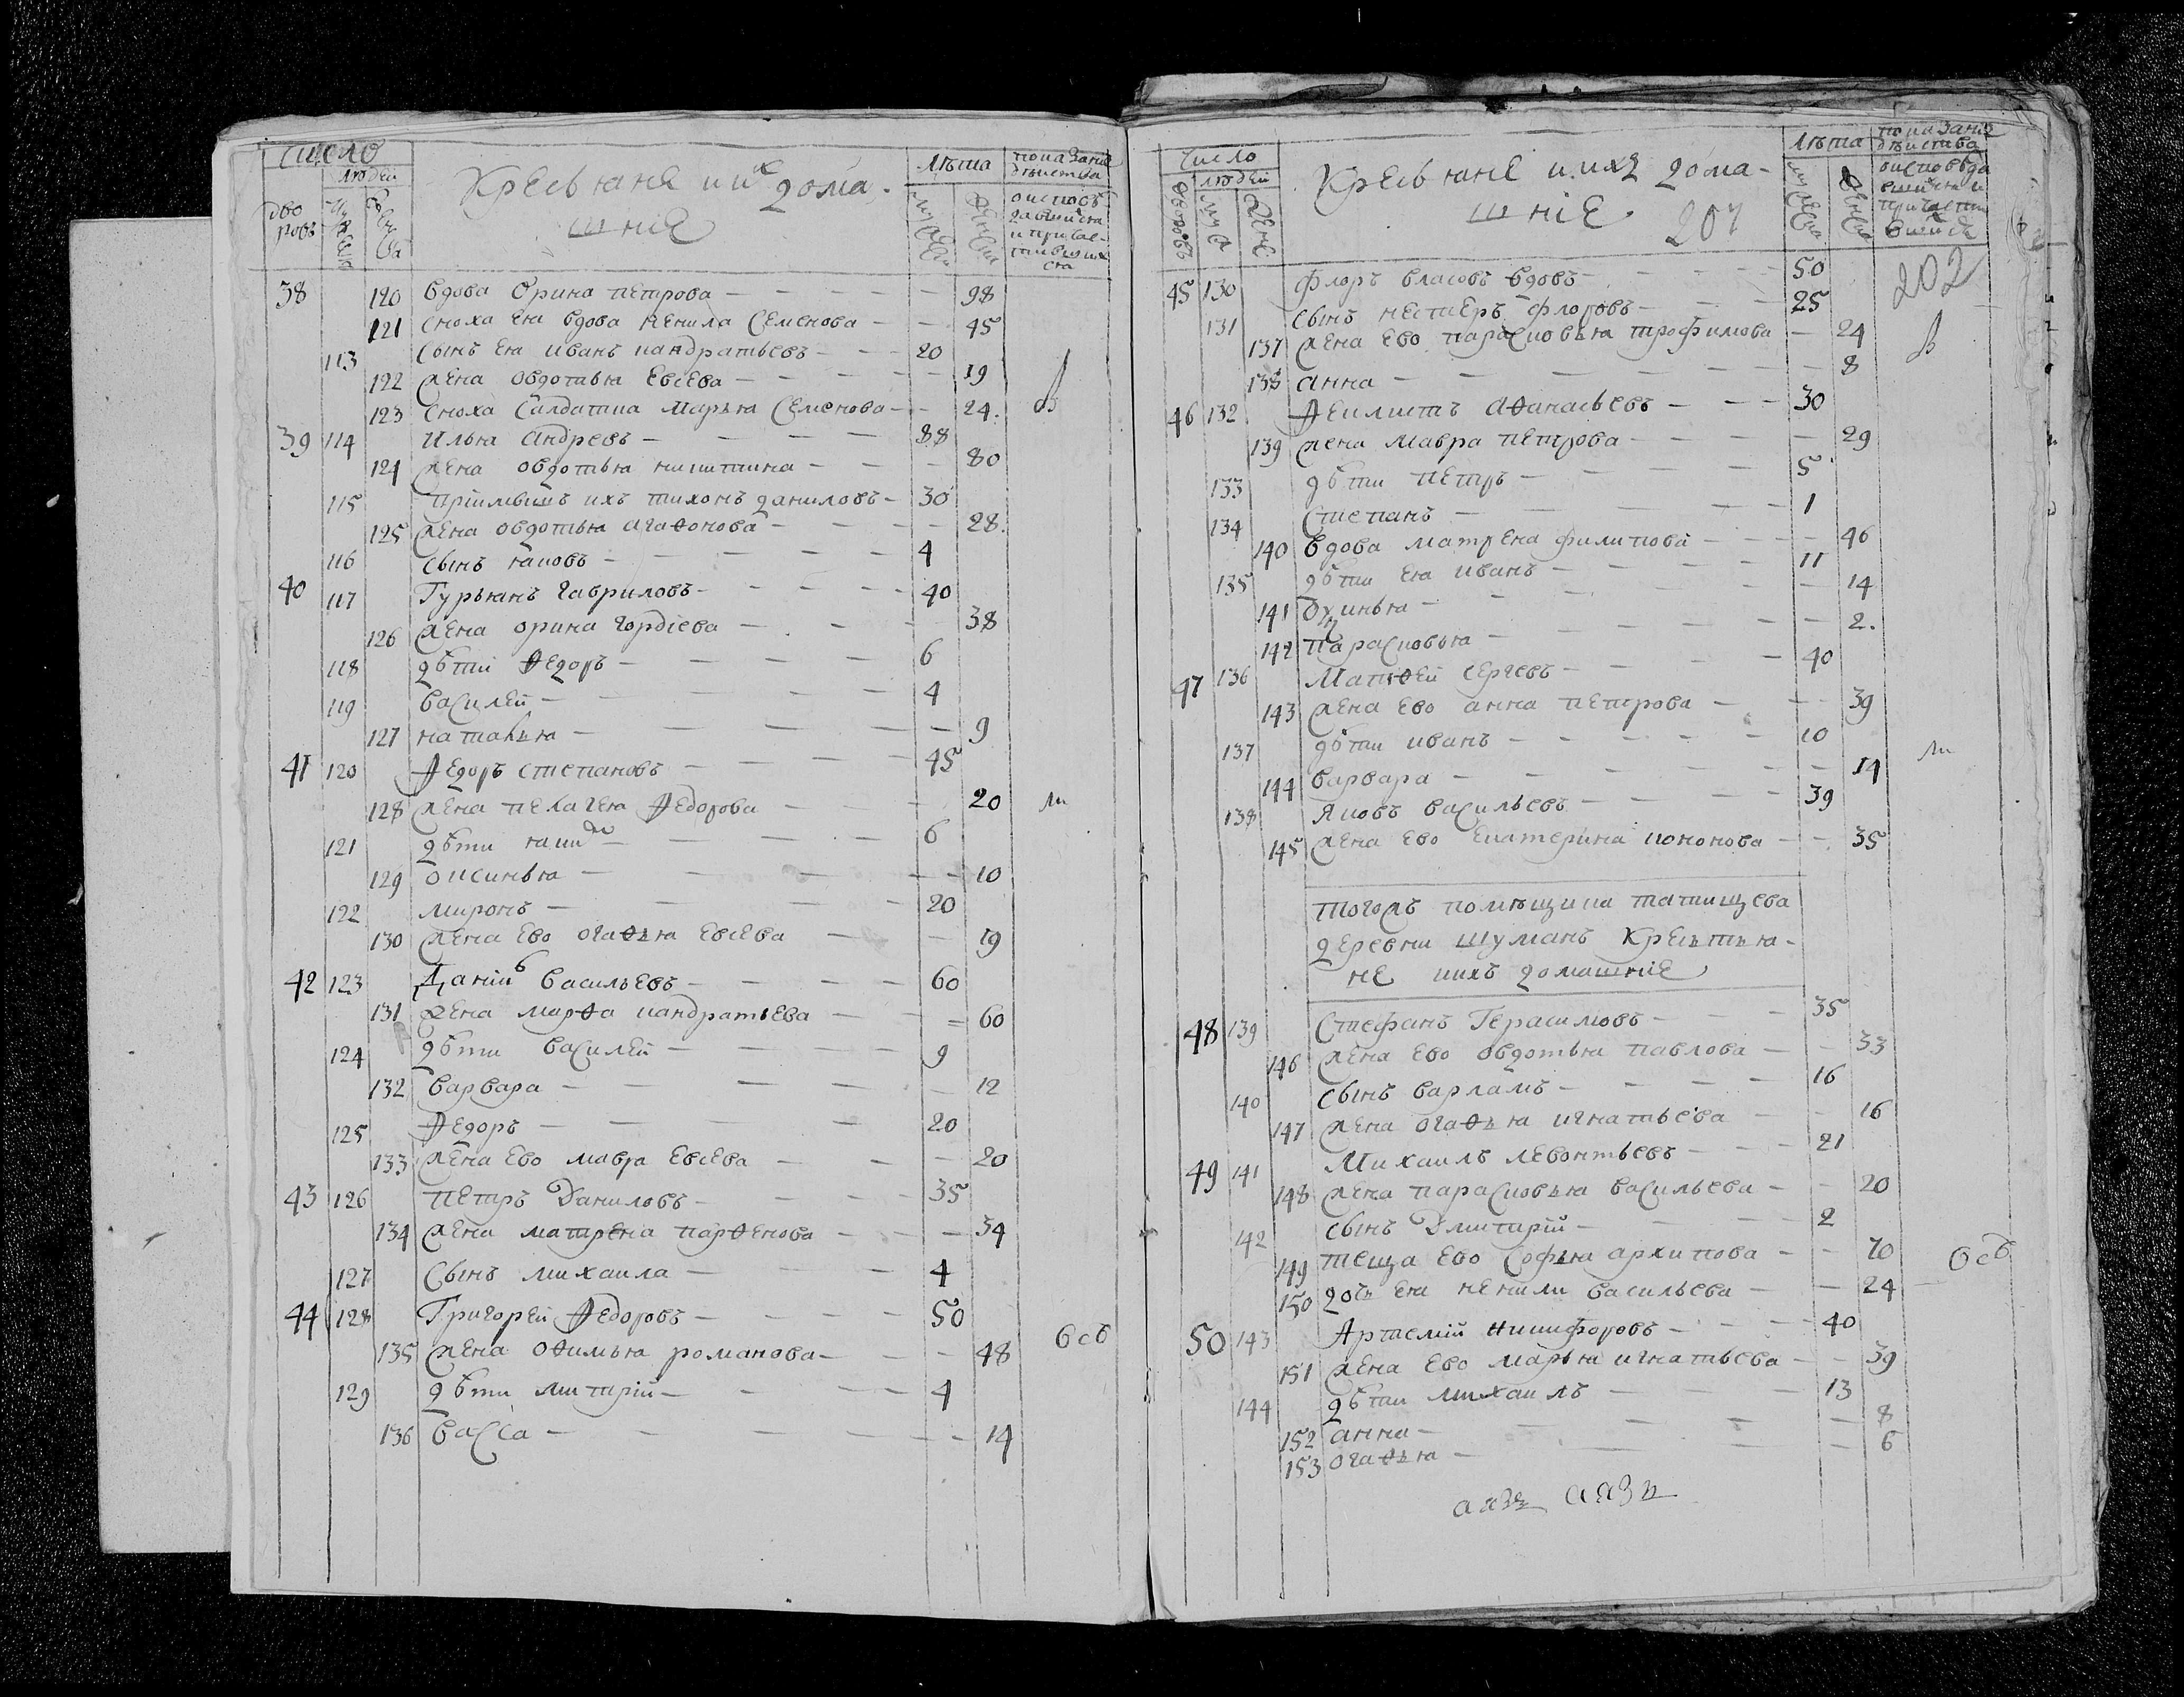 число
людей
Крестьяне и их дома-
лѣта
показание
дѣиства
дво
ровъ
шние
38 120 вдова Орина петрова — 98
121 сноха ея вдова ненила Семенова — 45
113 сынъ ея иванъ кандратьевъ — 20
122 жена овдотья Евсева — 19
123 сноха Салдатка Марья Семенова — 24.
39 114 Илья андревъ — 88
124 жена овдотья никитина — 80
115 приимышъ ихъ тихонъ даниловъ — 30
125 жена овдотья агаѳонова — 28.
116 сынъ яковъ — 4
40 117 Гурьянъ Гавриловъ — 40
126 жена орина гордіева — 38
118 дѣти Ѳедоръ — 6
119 василей — 4
127 наталья — 9
41 120 Ѳедоръ степановъ — 45
128 жена пелагея Ѳедорова — 20
121 дѣти — 6
129 оксинья — 10
122 миронъ — 20
130 жена Ево огаѳья Евсева — 19
42 123 Данiи Васильевъ — 60
131 жена марѳа кандратьева — 60
124 дѣти василей — 9
132 варвара — 12
125 Ѳедоръ — 20
133 жена Ево мавра Евсева — 20
43 126 петръ Даниловъ — 35
134 жена матрена парѳенова — 34
127 Сынъ михаила — 4
44 128 Григорей Ѳедоровъ — 50
135 жена оѳимья романова — 48
129 дѣти митрій — 4
136 васса — 14
число
людей
Крестьяне и ихъ дома-
шніе
207
лѣта
202
45 130 флоръ власовъ вдовъ — 50
131 сынъ нестеръ флоровъ — 25
137 жена ево парасковья трофимова — 24
138 анна — 8
46 132 Ѳеклистъ аѳанасьевъ — 30
139 жена мавра петрова — 29
133 дѣти петръ — 5
134 степанъ — 1
140 вдова матрена филипова — 46
135 дѣти ея иванъ — 11
141 — 14
142 парасковья — 2.
47 136 Матѳей сергевъ — 40
143 жена ево анна петрова — 39
137 дѣти иванъ — 10
144 варвара — 14
138 Яковъ васильевъ — 39
145 жена ево Екатерина кононова — 35
тогожъ помѣщика татищева
деревни шуманъ Крестья-
не ихъ домашніе
48 139 Стефанъ Герасимовъ — 35
146 жена ево овдотья павлова — 33
140 сынъ варламъ — 16
147 жена огаѳья игнатьева — 16
49 141 Михаилъ левонтьевъ — 21
148 жена парасковья васильева — 20
142 сынъ Дмитрій — 2
149 теща ево софья архипова — 70
150 дочь ея ненила васильева — 24
50 143 Артемій никифоровъ — 40
151 жена ево марья игнатьева — 39
144 дѣти михаилъ — 13
152 анна — 8
153 огаѳья — 6